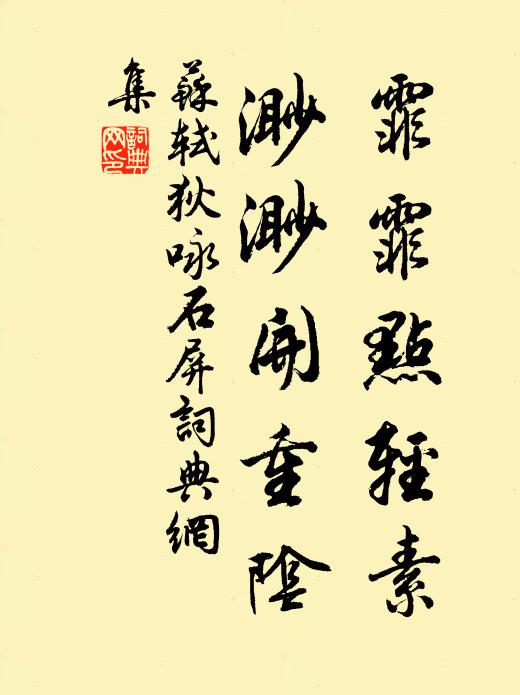 霏霏點輕素
渺渺開重陰
蘇軾狄咏石屏詞典網
集
詞典
网印